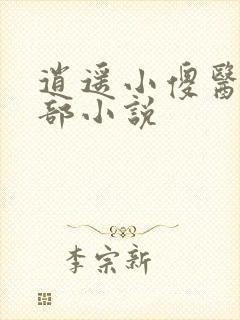 逍遥小傻醫
部小説
李宗新